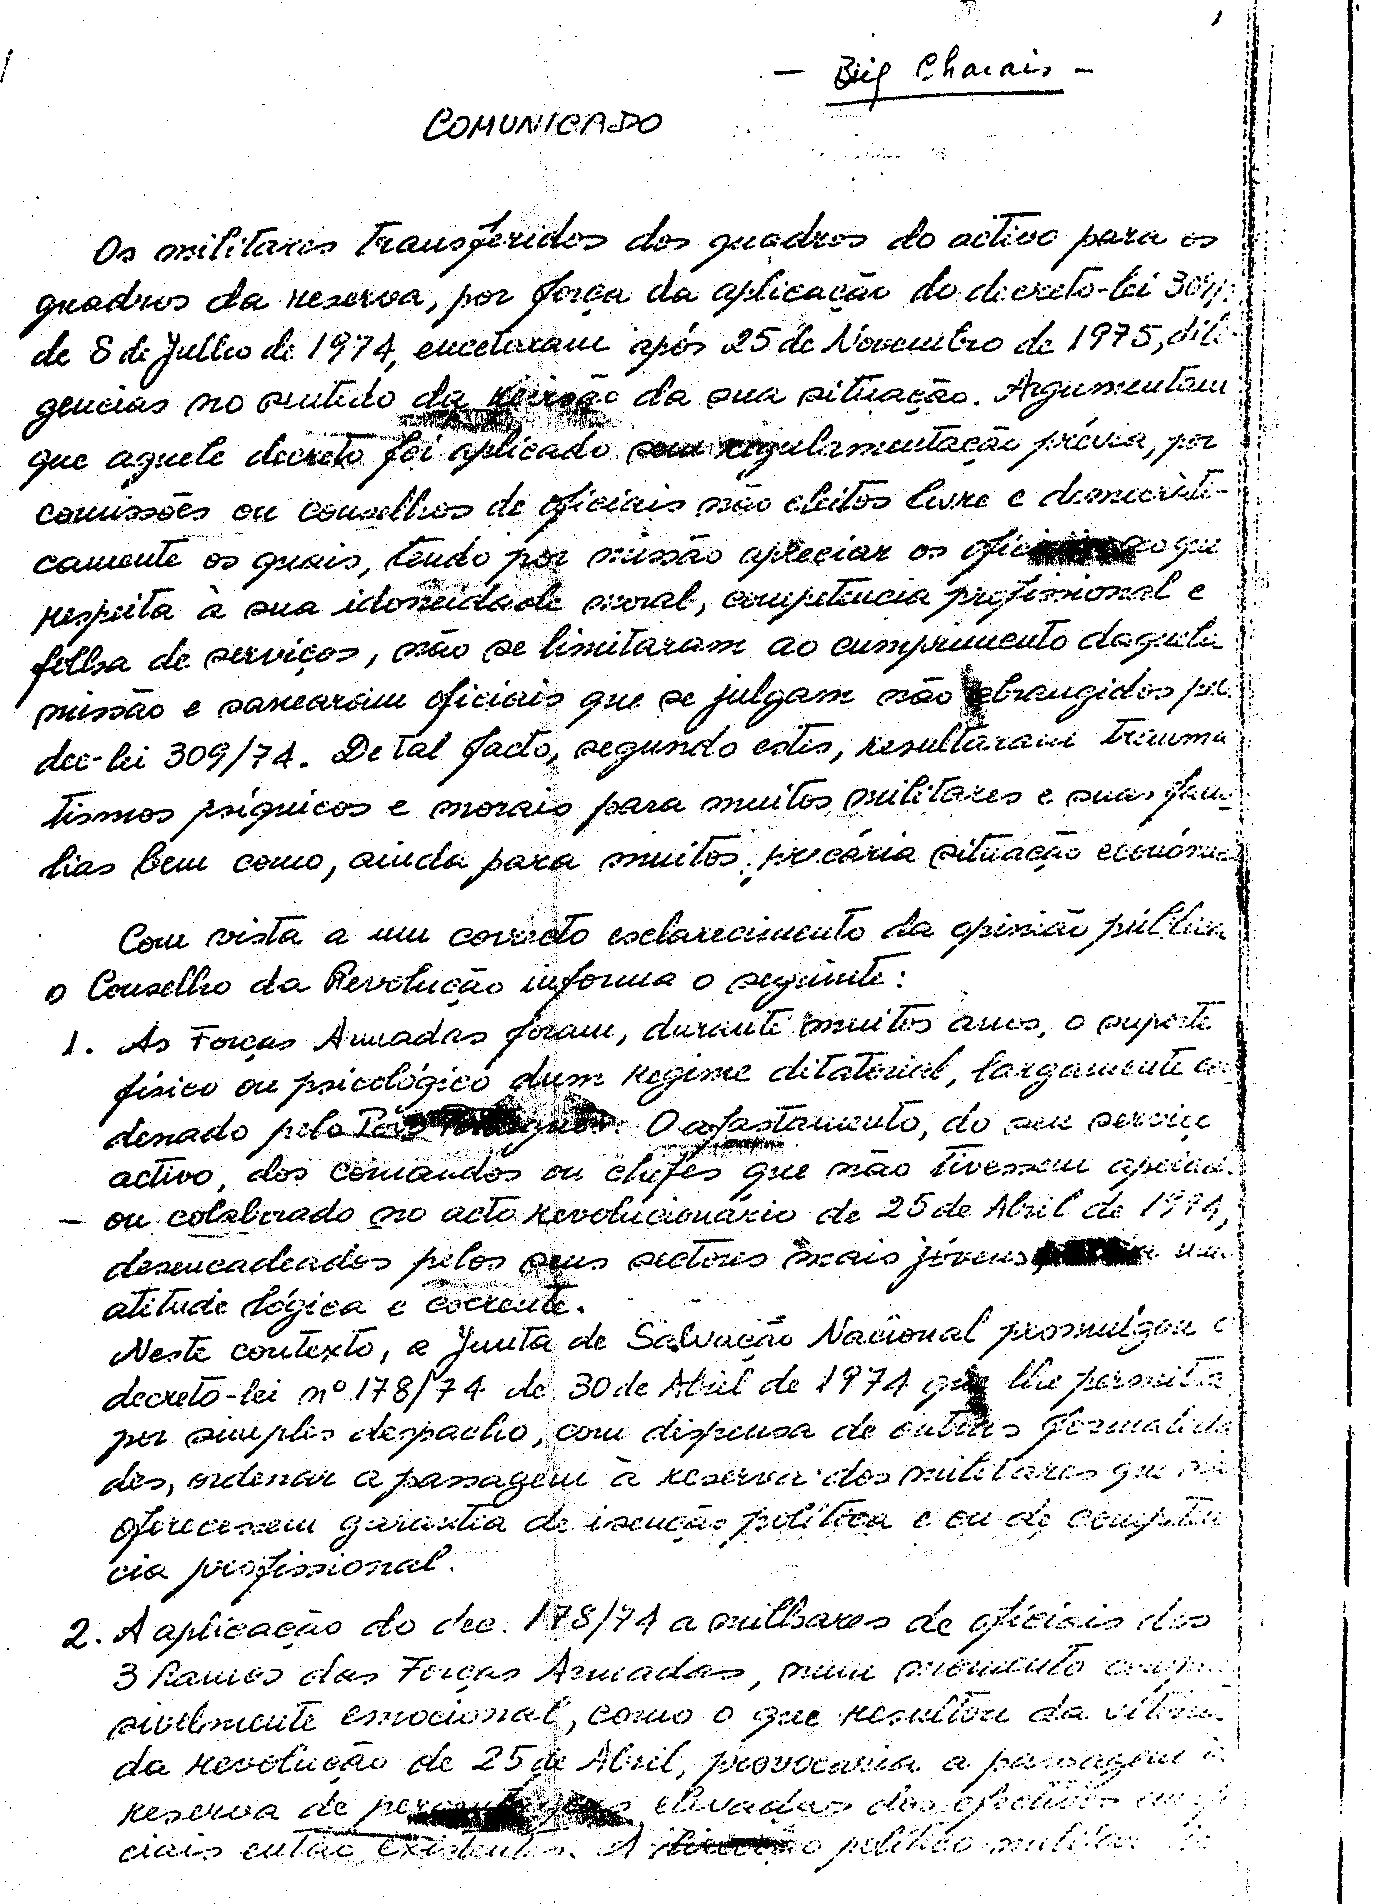 - Brig Charais -
COMUNICADO
Os militares transferidos dos quadros do activo para os
quadros da reserva, por força da aplicação do decreto-lei 309/
de 8 de Julho de 1974, encetaram após 25 de Novembro de 1975, dili-
gencias no sentido da revisão da sua situação. Argumentam
que aquele decreto foi aplicado sem regulamentação prévia, por
comissões ou conselhos de oficiais não eleitos livre e democráti-
camente os quais, tendo por missão apreciar os no que
respeita à sua idoneidade moral, competência profissional e
folha de serviços, não se limitaram ao cumprimento daquela
missão e sanearam oficiais que se julgam não abrangidos pel
dec-lei 309/74. De tal facto, segundo estes, resultaram trauma
tismos psíquicos e morais para muitos militares e suas famí
lias bem como, ainda para muitos, precária situação económic
Com vista a um correcto esclarecimento da opinião pública
o Conselho da Revolução informa o seguinte:
1. As Forças Armadas foram, durante muitos anos, o suporte
físico ou psicológico dum regime ditatorial, largamente con
denado pelo Povo Português. O afastamento, do seu serviço
activo, dos comandos ou chefes que não tivessem apoiad
- ou colaborado no acto revolucionário de 25 de Abril de 1974,
desencadeados pelos seus sectores mais jóvens, um
atitude lógica e coerente.
Neste contexto, a Junta de Salvação Nacional promulgou o
decreto-lei nº 178/74 de 30 de Abril de 1974 que lhe permitia
por simples despacho, com dispensa de outras formalida
des, ordenar a passagem à reserva dos militares que não
oferecessem garantia de isenção política e ou de competên
cia profissional.
2. A aplicação do dec. 178/74 a milhares de oficiais dos
3 Ramos das Forças Armadas, num momento compre
sivelmente emocional, como o que resultou da vitória
da revolução de 25 de Abril, provocaria a passagem à
reserva de percentagens elevadas dos efectivos em ofi
ciais então existentes. A político-militar